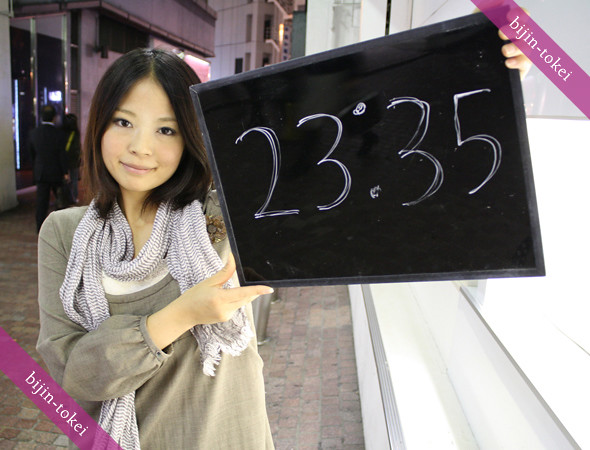 bijin-tokei
23:35
bijin-tokei